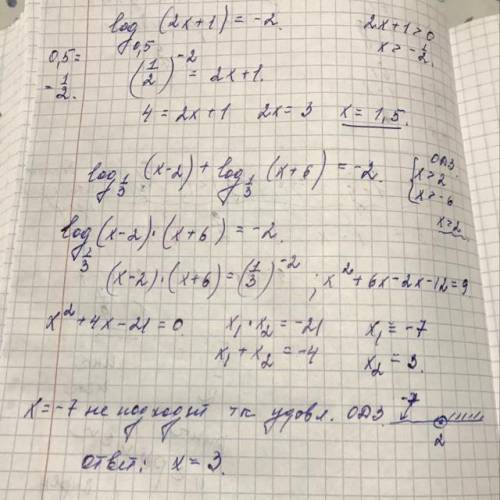 log₀,₅ (2x+1) = -2. 2x+1>0
0,5= (1/2)⁻² = 2x+1. x>-1/2.
-1/2.
4 = 2x+1 2x=3 x=1,5.
log₁/₃ (x-2) + log₁/₃ (x+6) = -2. { ОДЗ. x>2 x>-6
x>2
log₁/₃ (x-2)·(x+6) = -2.
(x-2)·(x+6) = (1/3)⁻² ; x²+6x-2x-12=9
x²+4x-21=0 x₁·x₂=-21 x₁=-7
x₁+x₂=-4 x₂=3.
x=-7 не подходит тк удовл. ОДЗ. -7 2
ответ: x=3.